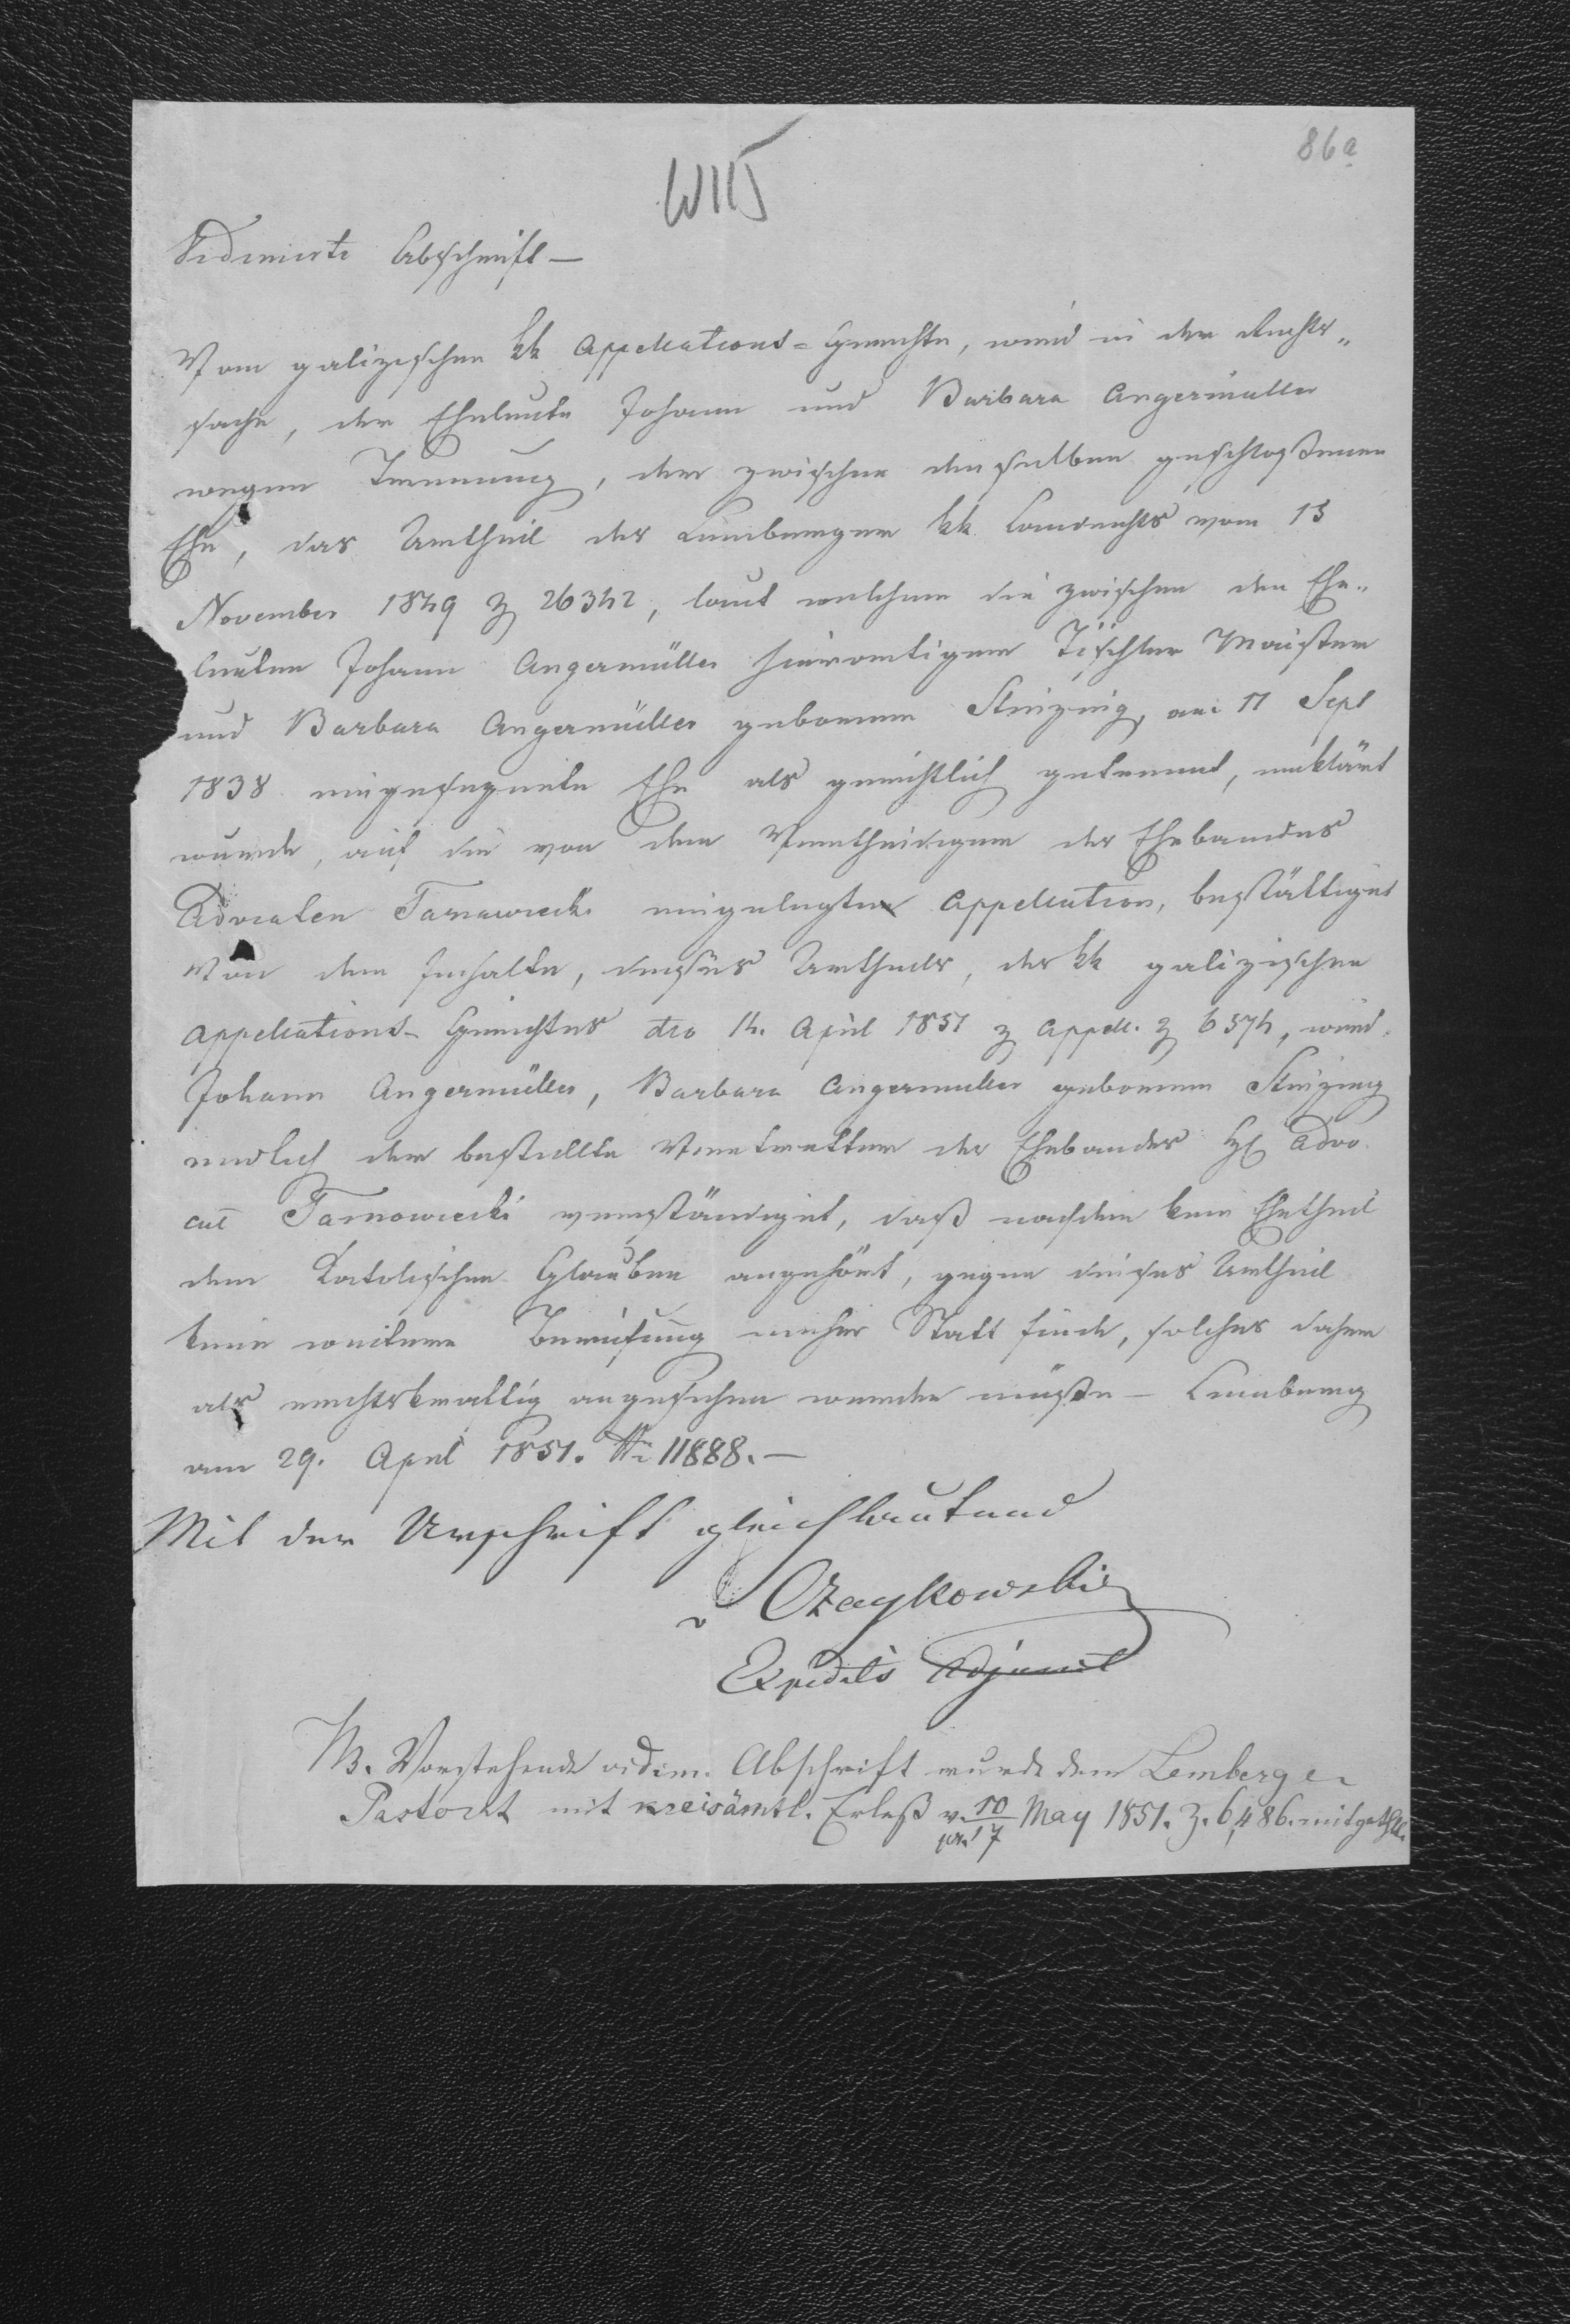 86a
Vidimirte Abschrift —
Vom galizischen kk Appellations=Gerichte, wird in der Rechts„
sache, der Eheleute Johann und Barbara Angermüller
wegen Trennung, der zwischen denselben geschloßenen
Ehe, das Urtheil des Lemberger kk Landrechts vom 13
November 1849 Z 26342, laut welchem die zwischen den Ehe„
leuten Johann Angermüller hierortigem Tischler Meister
und Barbara Angermüller geborenen Stinzing, am 17 Sept
1838 eingesegnete Ehe als gerichtlich getrennt, erklärt
wurde, auf die von dem Vertheidiger des Ehebandes
Advocaten Tarnawiecki eingelegte Appellation, bestättiget
Von dem Inhalte, dieses Urtheils, des kk galizischen
Appellations-Gerichtes dto 14. April 1851 z Appell. Z 6574, wird
Johann Angermüller, Barbara Angermüller geborenen Stinzing
endlich der bestellte Vertretter des Ehebandes H Advo
cat Tarnowiecki verständiget, daß nachdem kein Ehetheil
dem Katolischen Glauben angehört, gegen dieses Urtheil
keine weitere Berufung mehr Statt finde, solches daher
als rechtskräftig angesehen werden müße — Lemberg
am 29. April 1851. Nr 11888. —
Mit der Urschrift gleichlautend
Czaykowski
Expedits Adjunct
NB. Vorstehende vidim. Abschrift wurde dem Lemberger
Pastorat mit kreisämtl. Erlaß v. 10 May 1851. Z. 6,486. mitgethlt.
pr. 17